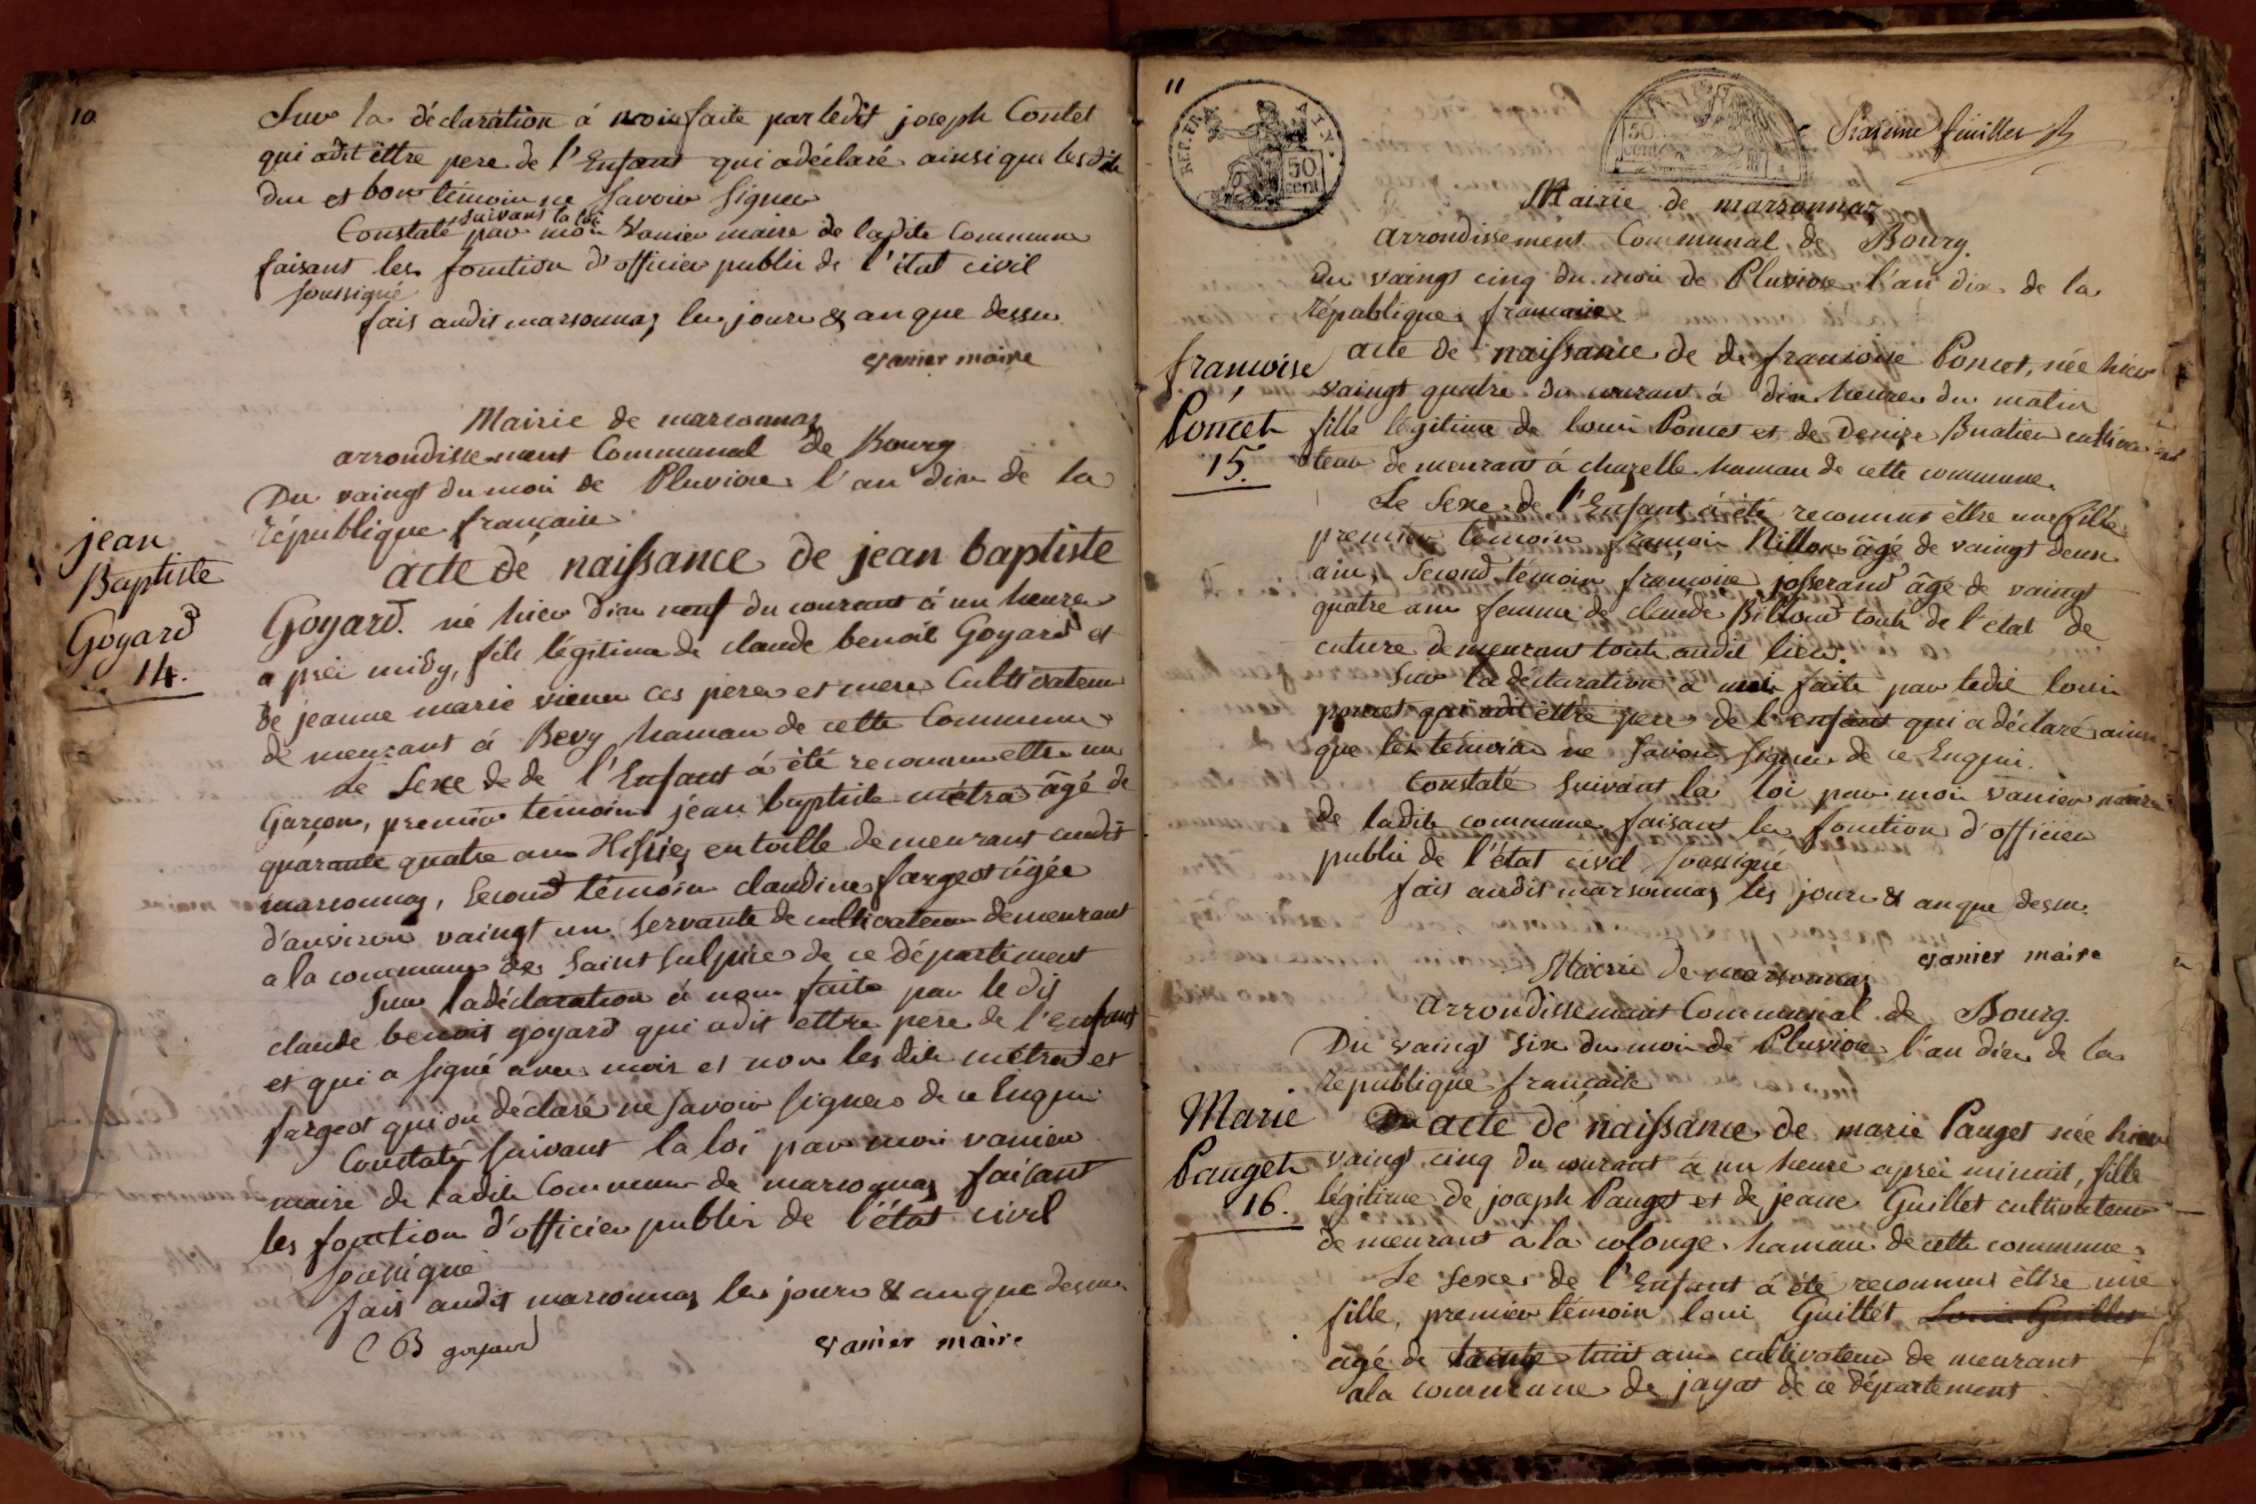 10
Sur la déclaration á moi faite par ledit joseph Contet
qui adit ettre pere de l'Enfant qui adéclaré ainsi que lesdit
du et bon témoin ne Savoir Signer
suivant la loi
Constaté par moi Vanier maire de ladite Commune
faisant les fonction d'officier public de l'état civil
soussigné
fait audit marsonnaz les jours & an que dessu
vanier maire
Mairie de marsonnaz
arrondissement Communal de Bourg
Du vaingt du moi de Pluviose l'an dix de la
république française
jean
Baptiste
Goyard
14.
acte de naissance de jean baptiste
Goyard. né hier dix neuf du courant á un heure
a prèi midy, fils légitime de claude benoit Goyard et
de jeanne marie vieux ces pere et mere Cultivateur
de meurant á Bevy hamau de cette Commune
Le Sexe de de l'Enfant á été reconnu ettre un
Garçon, premier témoin jean baptiste métra âgé de
quarante quatre ans Tissier en toille demeurant audit
marsonnaz, Second témoin claudine fargeot âgée
d'anviron vaingt un servante de cultivateur demeurant
a la commune de Saint Sulpice de ce département
Sur la déclaration á nous faite par le dit
claude benoit goyard qui adit ettre pere de l'enfant
et qui a signé avec moi et non les dite métra et
fargeot qui on déclaré ne savoir signer de ce Enqui
Constaté suivant la loi par moi vanier
maire de ladite Commune de marsonnaz faisant
les fonction d'officier public de l'état civil
soussigné
fait audit marsonnaz les jours & an que dessu
C B goyard
vanier maire
11
REP. FRA
50
cent
50
cent
Sixieme feuillet
Mairie de marsonnaz
arrondissement Communal de Bourg.
du vaingt cinq du moi de Pluviose l'an dix de la
république française
françoise
Poncet
15.
acte de naissance de de françoise Poncet, née hier
vaingt quatre du courant á dix heures du matin
fille légitime de louis Poncet et de Denise Buatier cultiva
teur de meurant á chazelle hamau de cette commune.
Le Sexe de l'Enfant á été reconnus êttre une fille
premier témoin françoi Nillon âgé de vaingt deux
ans, Second témoin françoise josserand âgé de vaingt
quatre ans femme de claude Billoud touts de l'état de
culture demeurant touts audit lieu.
Sur la déclaration a moi faite par ledit louis
poncet qui adit êttre pere de l'enfant qui a déclaré ainsi
que les témoins ne Savoir signer de ce Enqui.
Constaté Suivant la loi par moi vanier maire
de ladite commune faisant les fonction d'officier
public de l'état civil soussigné
fait audit marsonnaz les jours & an que dessu.
vanier maire
Mairie de marsonnaz
arrondissement Communal de Bourg.
Du vaingt Six du moi de Pluviose l'an dix de la
république française
Marie
Pauget
16.
acte de naissance de marie Pauget née hier
vaingt cinq du courant á un heure aprèi minuit, fille
légitime de joseph Pauget et de jeane Guillet cultivateur
de meurant a la colonge hamau de cette commune
Le Sexe de l'Enfant á été reconnus êttre une
fille, premier témoin loui Guillet Loui Guillet
âgé de trente huit ans cultivateur de meurant
ala commune de jayat de ce département